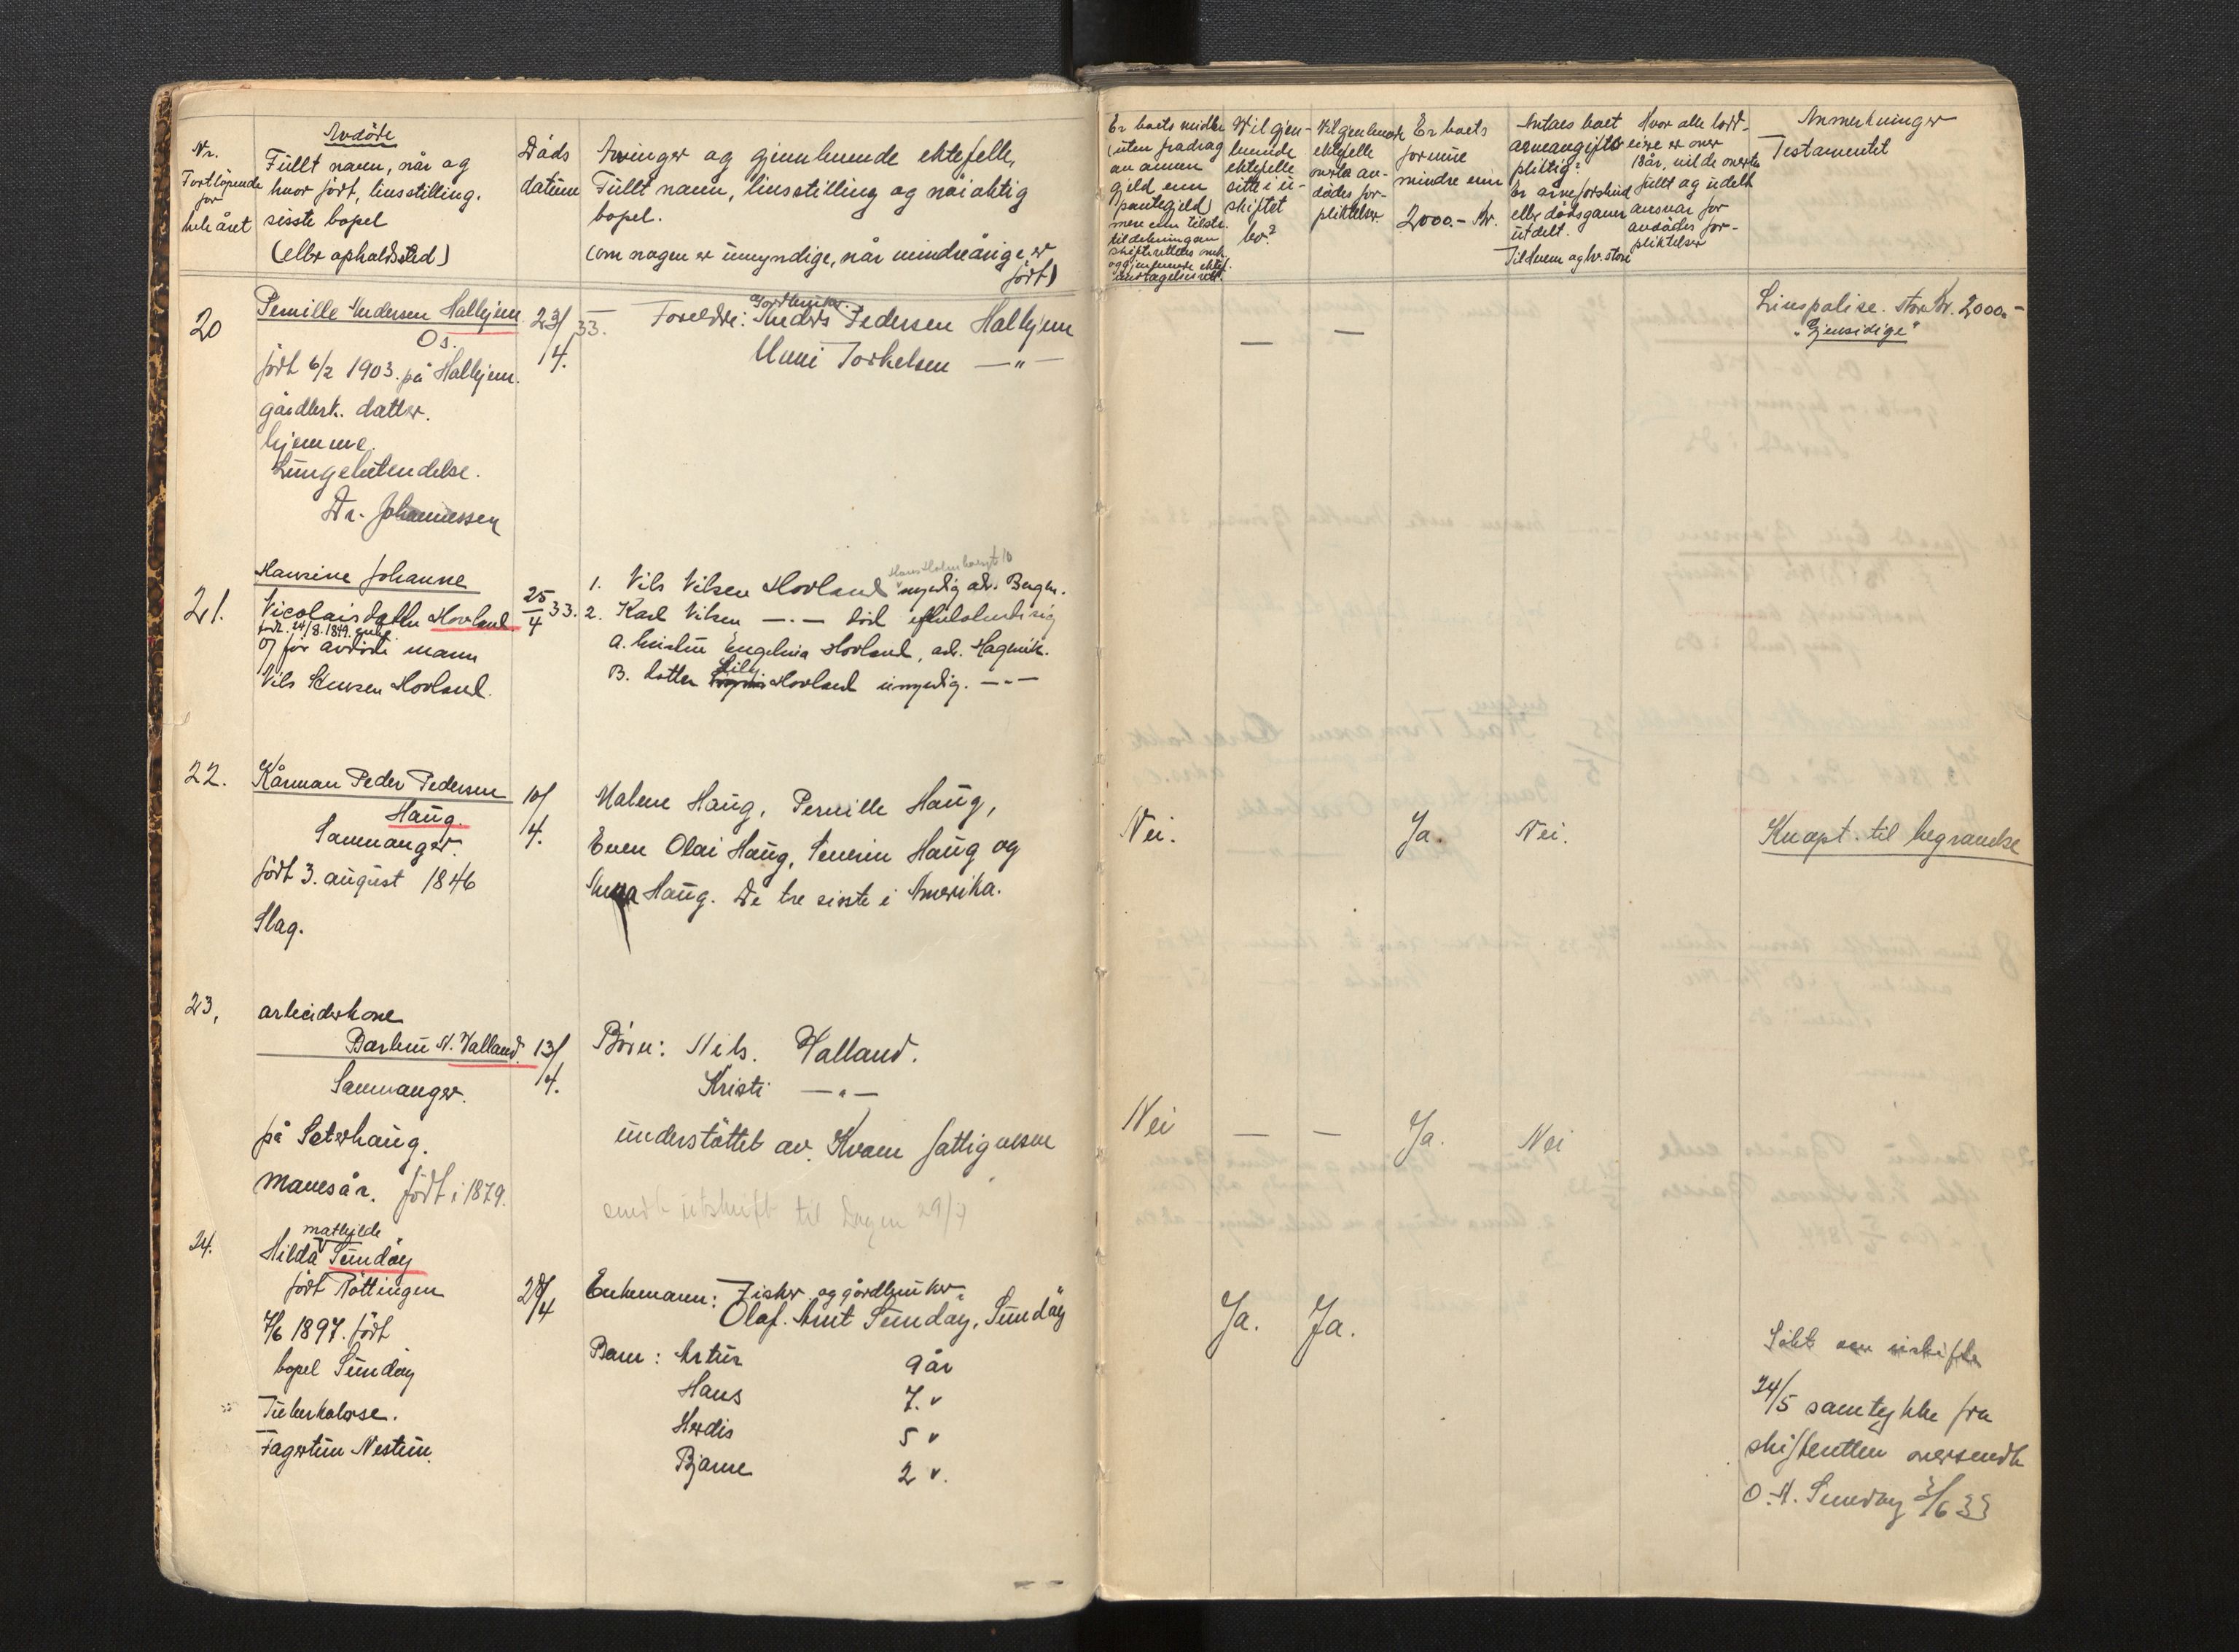 Nr.
Fortløpende
for
hele året
Avdøde
Fullt navn, når og
hvor født, livsstilling.
sisste bopel
(eller opholdssted)
Døds
datum
Arvinger og gjenlevende ektefelle,
Fullt navn, livsstilling og nøiaktig
bopel.
(om nogen er umyndige, når mindreårige er
født)
Er boets midler
(uten fradrag
av annen
gjeld enn
pantegjeld)
mere enn tilstr.
til dekning av
Vil gjen-
levende
ektefelle
sitte i u-
skiftet
bo?
Vil gjenlevende
ektefelle
overta av-
dødes for-
pliktelser
Er boets
formue
mindre enn
2000.- Kr.
Antaes boet
arveavgifts
pliktig?
Er arveforskud
eller dødsgaver
utdelt.
Til hvem og hv. store
Hvor alle lodd-
eiere er over
18 år, vil de overta
fullt og udelt
ansvar for
avdødes for-
pliktelser
Anmerkninger
Testamentet
20
Pernille Andersen Halhjem
Os.
født 6/2 1903. på Halhjem.
gårdbrk. datter.
hjemme.
Lungebetendelse.
Dr. Johannessen
23/4. 33.
Gordbruker.
Foreldre: Anders Pedersen Halhjem
Unni Torkelsen —"—
— —
Livspolise. stor Kr. 2000.-
"Gjensidige"
21.
Hansine Johanne
Nicolaisdatter Hovland
født. 24/8. 1849. enke
for avdøde mann
Nils Hovland.
25/4 33.
1. Nils Nilsen Hovland myndig adr. Bergen.
2. Karl Nilsen —"— død efterlatende sig
A. hustru Engelina Hovland, adr. Hagevik.
Lily
B. datter Hovland umyndig. —"—
22.
Kårmann Peder Pedersen
Haug.
Samnanger.
født 3. august 1846
Slag.
10/4.
Malene Haug, Pernille Haug,
Even Olai Haug, Severin Haug og
Anna Haug. De tre sisste i Amerika.
Nei. Ja. Nei.
Knapt til begravelse
23.
arbeiderkone
Barbru N. Valland.
Samnanger.
på Seterhaug.
mavesår. født i 1879.
13/4.
Børn: Nils. Valland.
Kristi —"—
understøttet av. Kvam fattigvesen
sendt utskrift til Dagen 29/4
Nei — — Ja. Nei
24.
mathilde
Hilda Sundøy
født Røttingen
7/6 1897. født
bopel Sundøy
Tuberkulose.
Fagertun Nestun.
28/4
Enkemann: Fisker og gårdbruker
Olaf. Arnt Sundøy, Sundøy
Barn: Artur 9 år
Hans 7. "
Herdis 5 "
Bjarne 2 ".
Ja. Ja.
Søkt om uskifte
24/5 samtykke fra
skifteretten oversendt
O. A. Sundøy 3/6 33